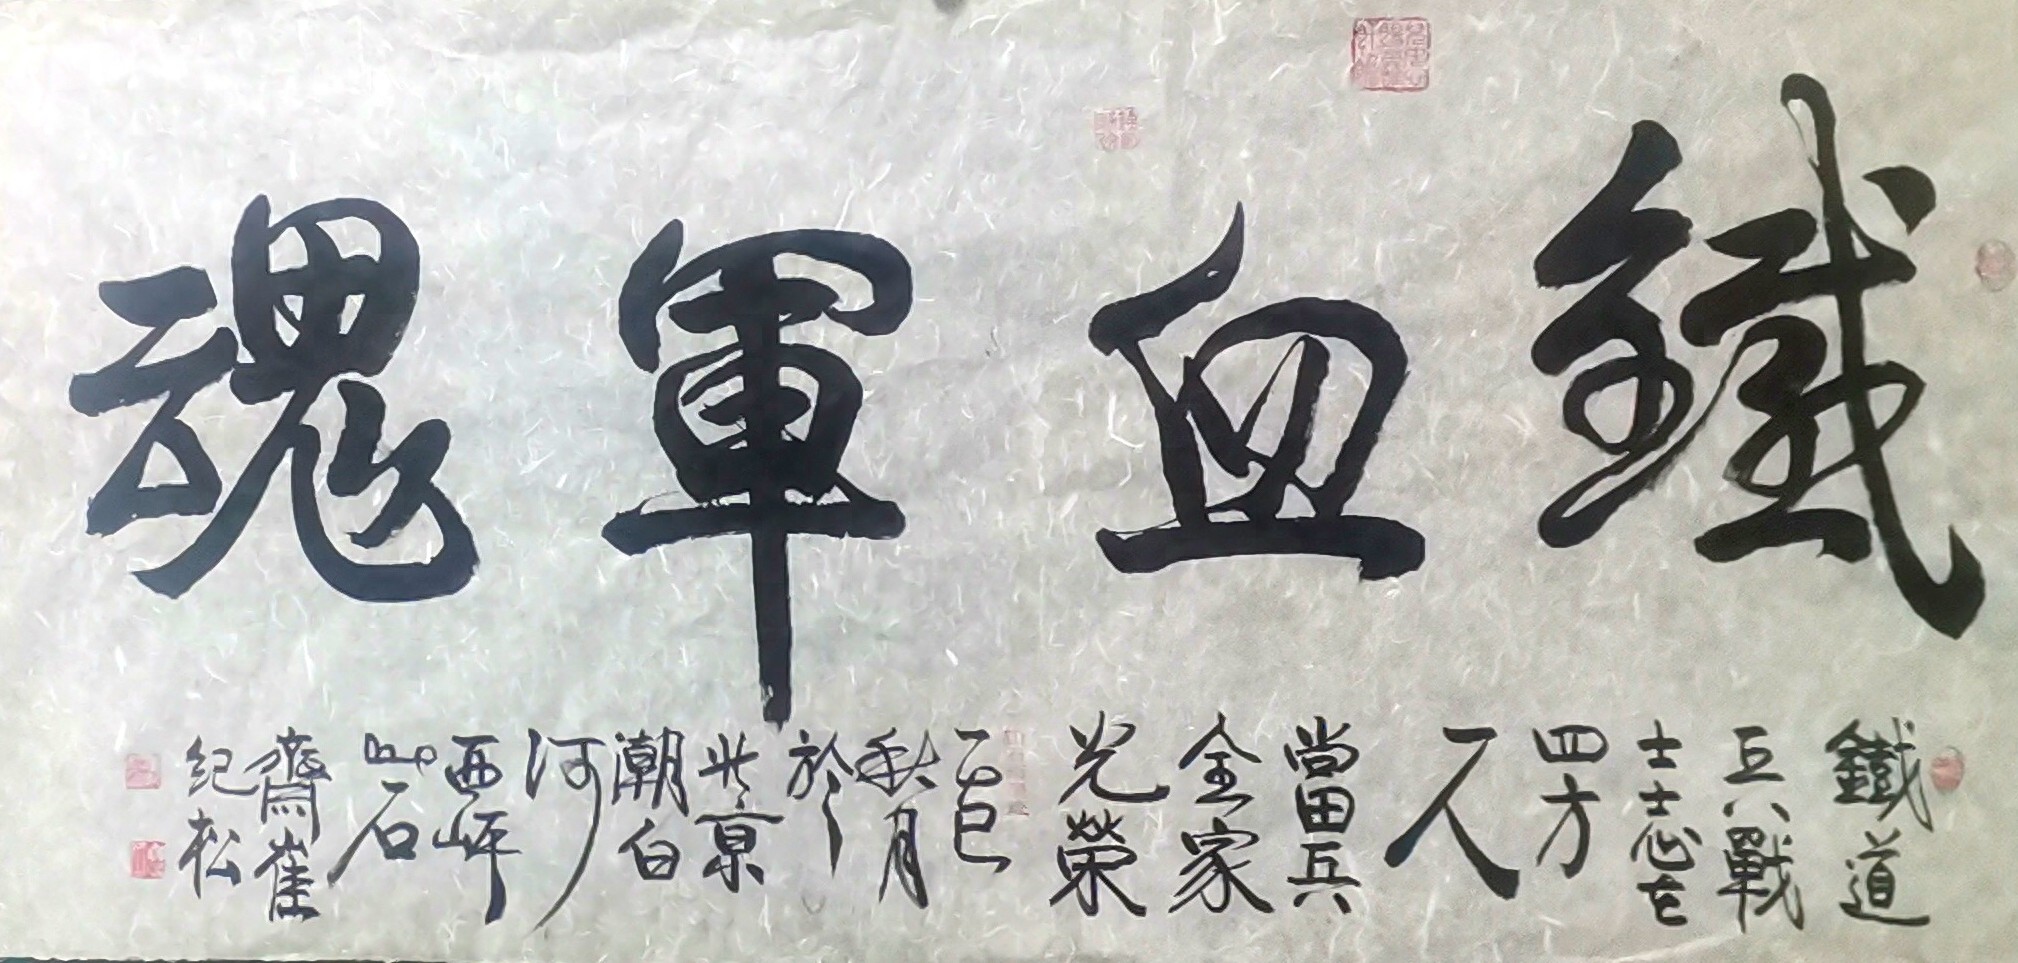 鐵血軍魂
鐵道
兵戰
士士志在
四方
人
當田兵
全家
光榮
乙巳
秋月
於
北京
潮白
河
西岼
石
齋崔
紀松